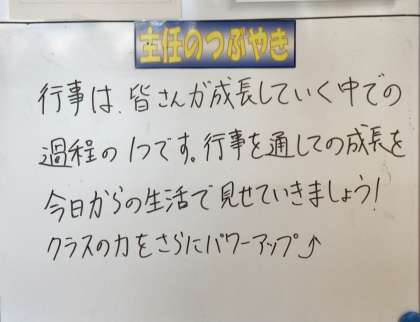 主任のつぶやき
行事は、皆さんが成長していく中での
過程の1つです。行事を通しての成長を
今日からの生活で見せていきましょう!
クラスの力をさらにパワーアップ⤴